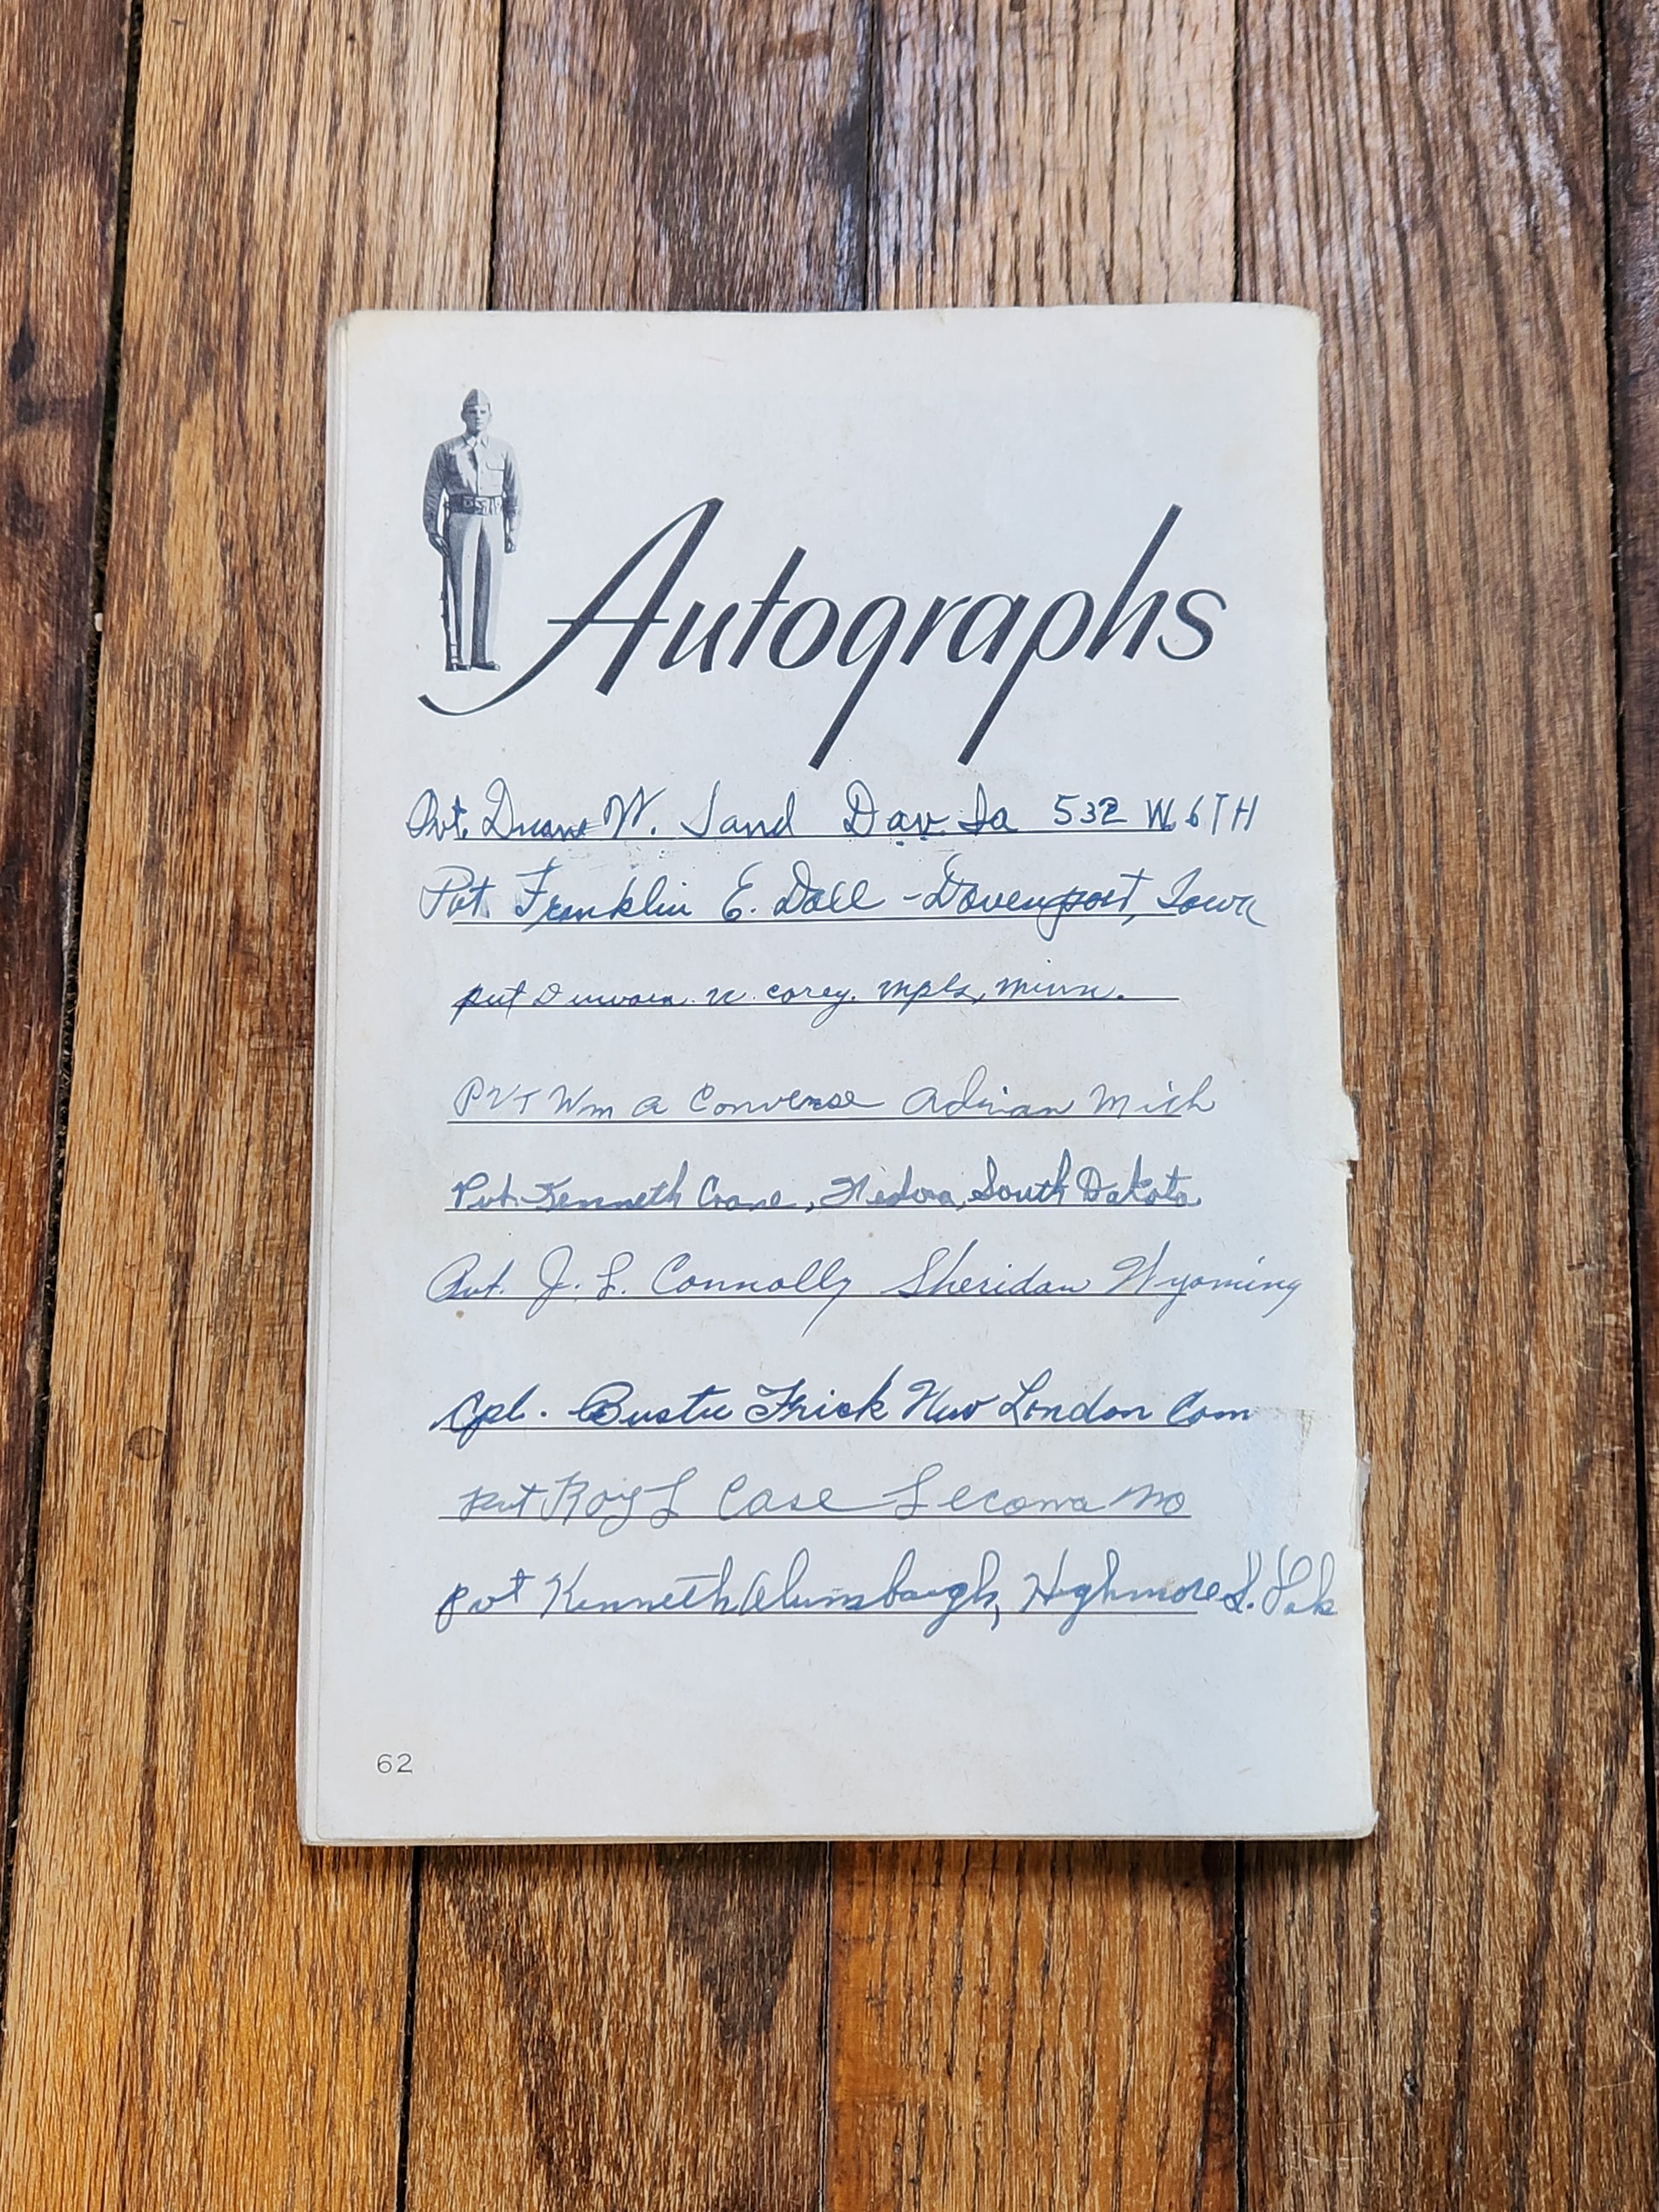 Autographs
Pvt. Duane W. Sand Dav. Ia 532 W. 6TH
Pvt. Franklin E. Doll - Davenport, Iowa
pvt N. Corey. Mpls, Minn.
PVT Wm A Converse Adrian Mich
Pvt. Kenneth Crane, South Dakota
Pvt. J. L. Connolly Sheridan Wyoming
Cpl. Frick New London Conn
pvt Roy L Case Mo
Pvt Kenneth Highmore S. Dak
62